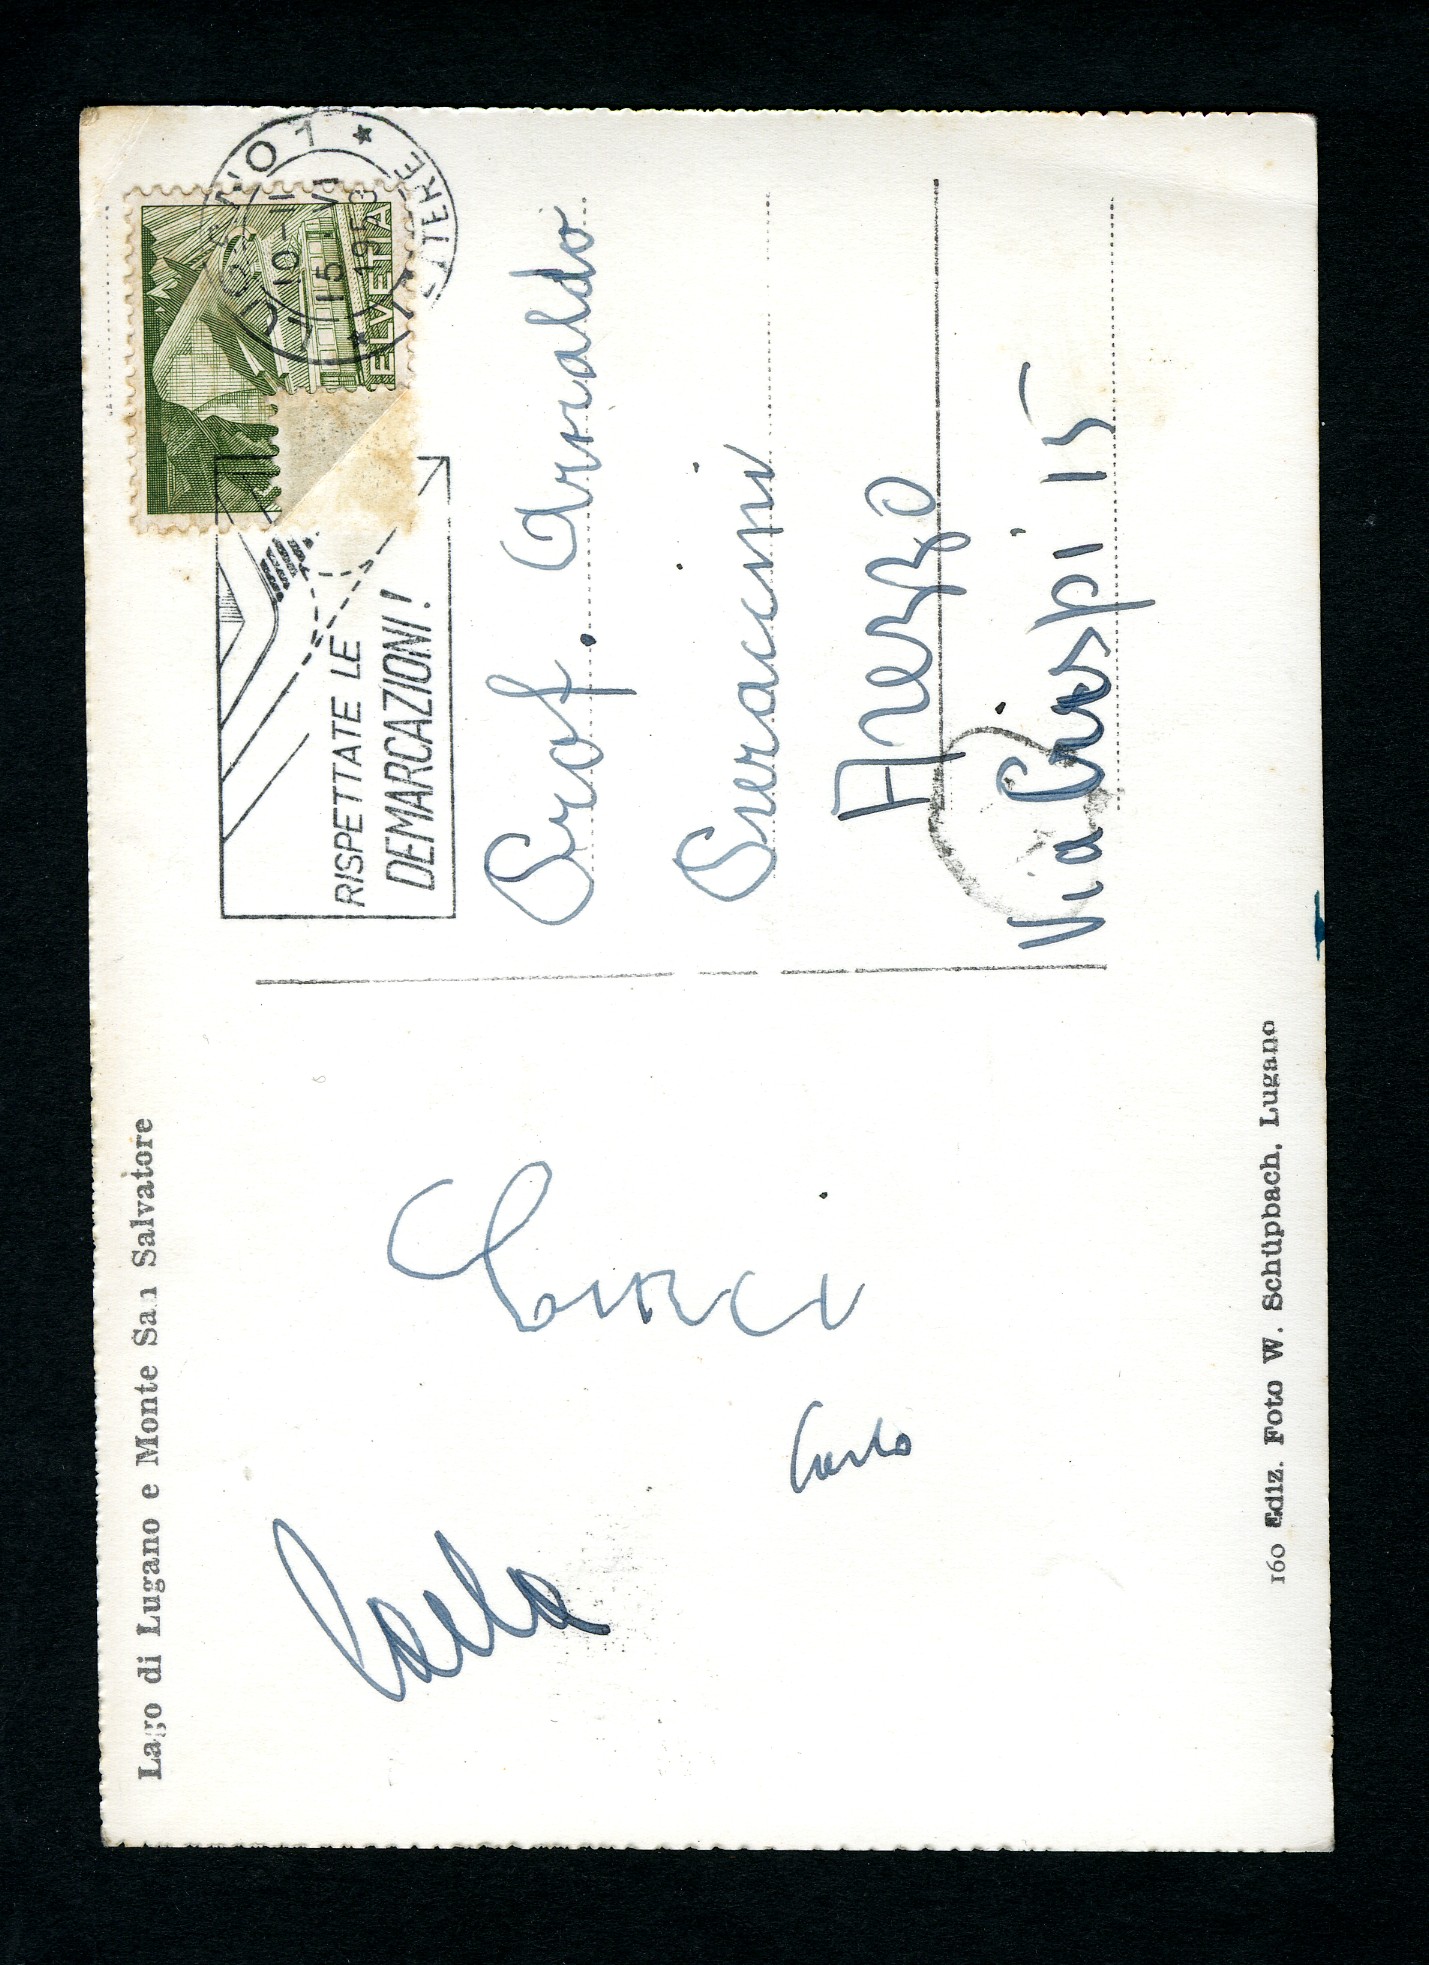 Lago di Lugano e Monte San Salvatore
Carla
Carlo
LUGANO 1
10-11
15.VI
1953
LETTERE
HELVETIA
RISPETTATE LE
DEMARCAZIONI!
Prof. Arnaldo
Pieraccini
Arezzo
Via Crispi 15
160 Ediz. Foto W. Schüpbach, Lugano